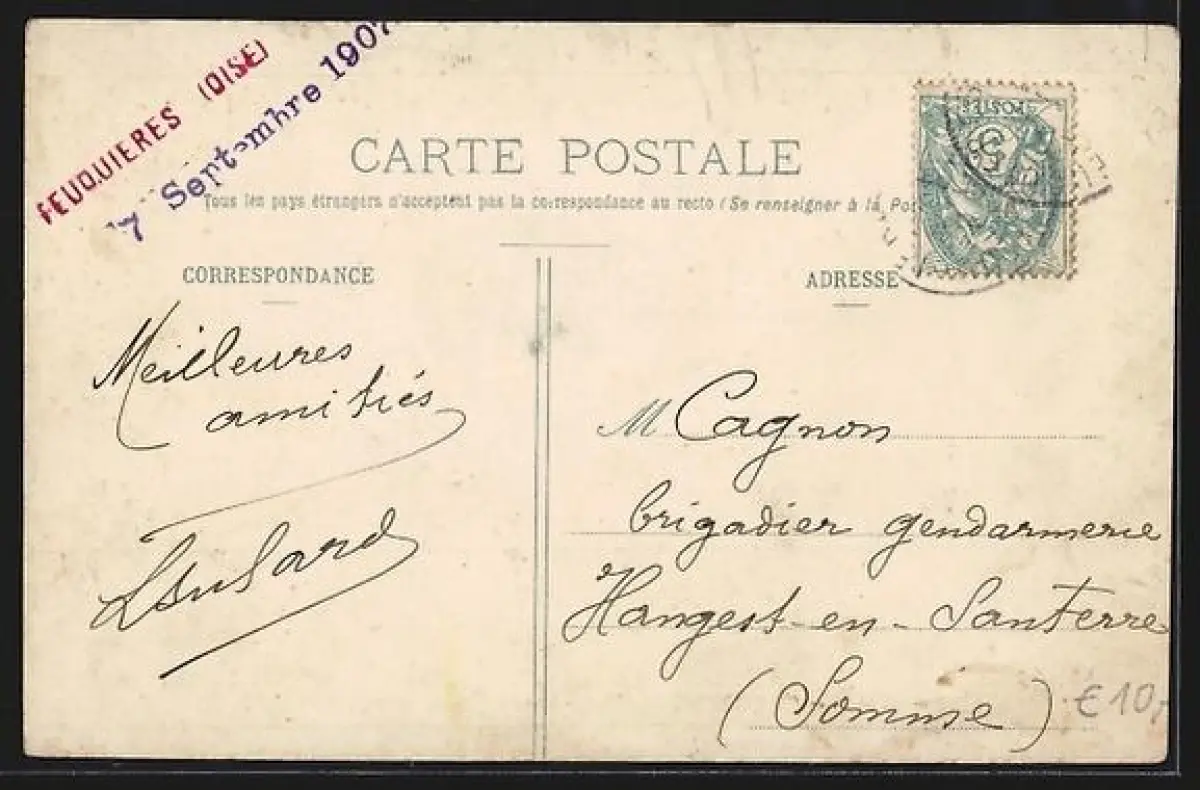 FEUQUIERES (OISE)
7 Septembre 1907
CARTE POSTALE
Tous les pays étrangers n'acceptent pas la correspondance au recto (Se renseigner à la Pos
CORRESPONDANCE
ADRESSE
POSTES
5
Meilleures
amitiés
M Cagnon
brigadier gendarmerie
Hangest-en-Santerre
(Somme)
€ 10,